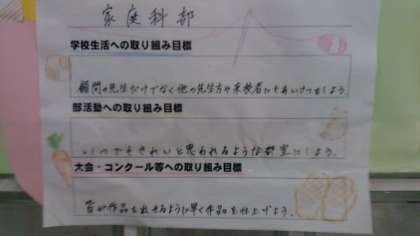 家庭科部
学校生活への取り組み目標
顧問の先生だけでなく他の先生方や来校者にもあいさつをしよう。
部活動への取り組み目標
いつでもきれいと思われるような教室にしよう。
大会・コンクール等への取り組み目標
皆が作品を出せるように早く作品を仕上げよう。